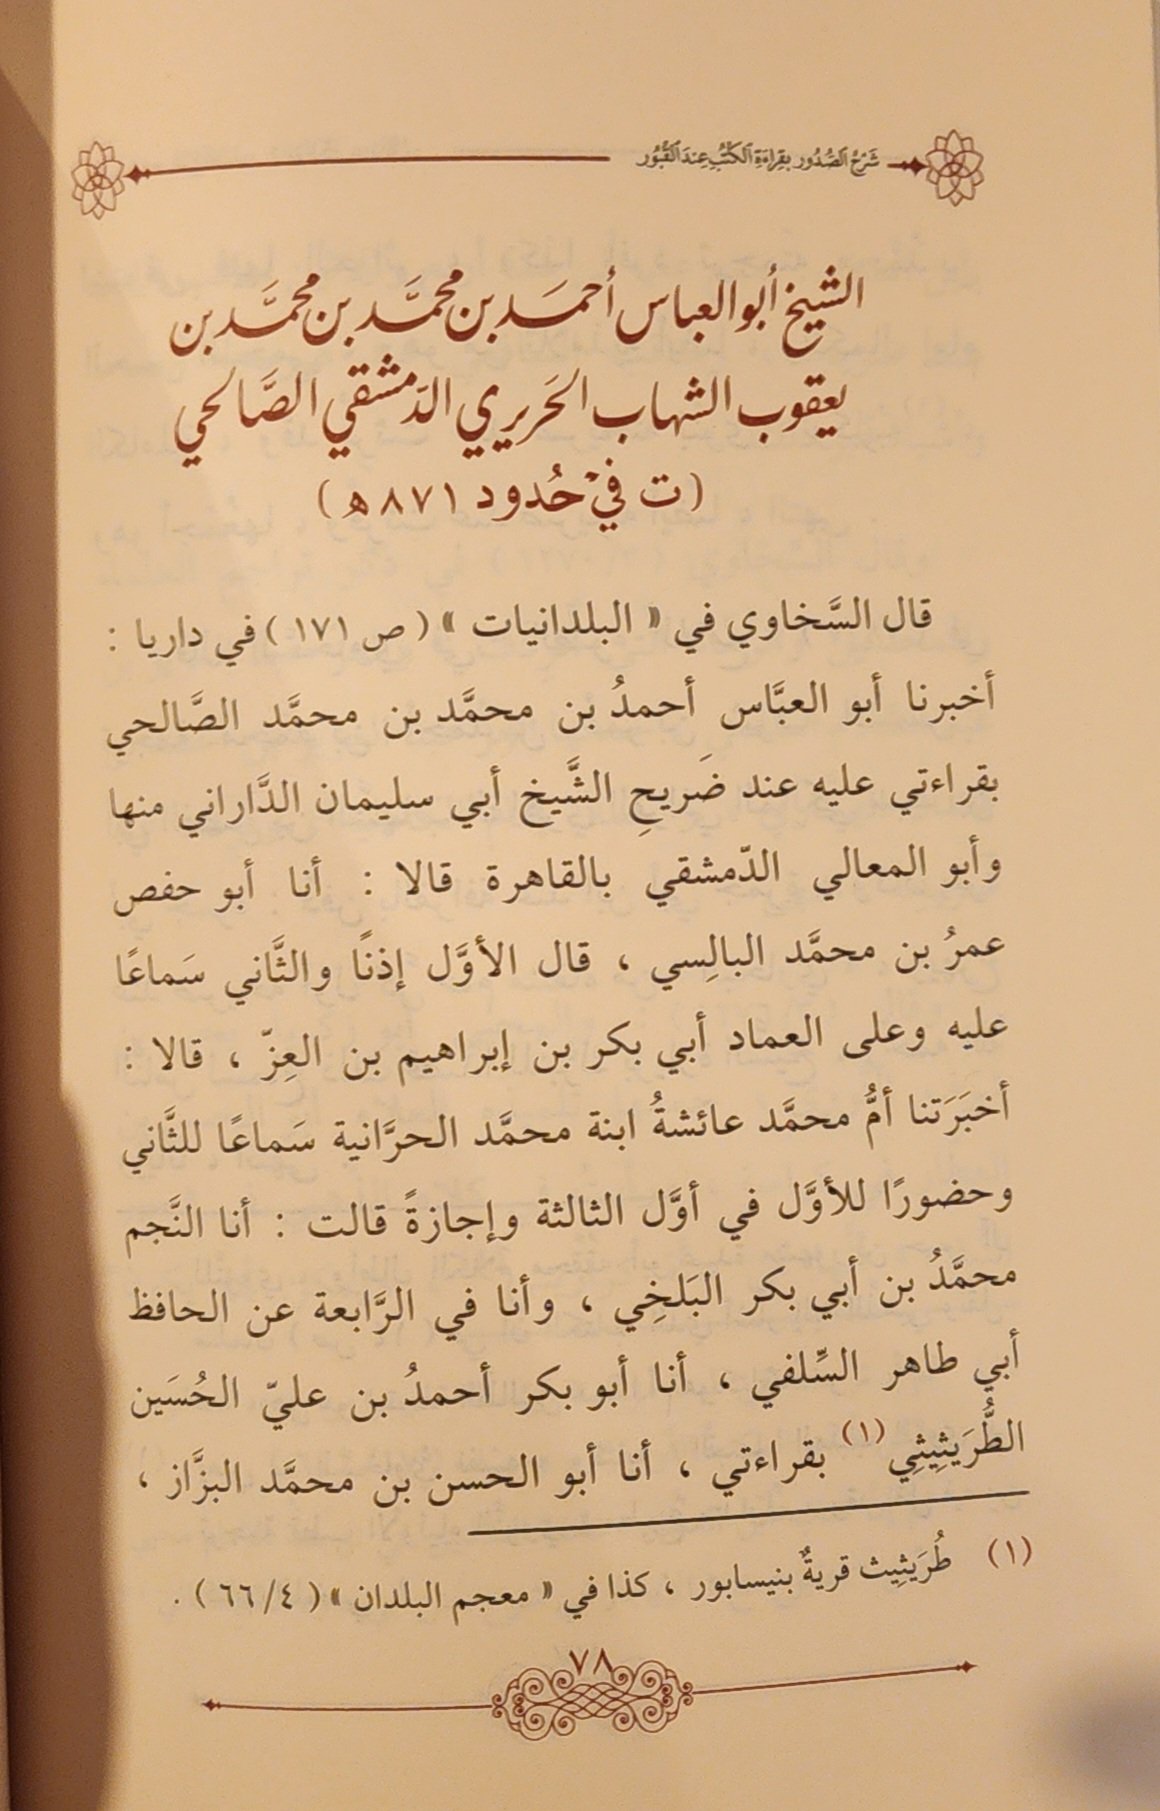 شَرْحُ الصُّدُور بِقِرَاءَةِ الكُتُبِ عِنْدَ القُبُور
الشيخ أبو العباس أحمَد بن محمَّد بن محمَّد بن
يعقوب الشهاب الحَريري الدّمشقي الصَّالحي
(ت في حُدود ٨٧١ هـ)
قال السَّخاوي في « البلدانيات » ( ص ١٧١ ) في داريا :
أخبرنا أبو العبَّاس أحمدُ بن محمَّد بن محمَّد الصَّالحي
بقراءتي عليه عند ضَريحِ الشَّيخ أبي سليمان الدَّاراني منها
وأبو المعالي الدّمشقي بالقاهرة قالا : أنا أبو حفص
عمرُ بن محمَّد البالِسي ، قال الأوَّل إذنًا والثَّاني سَماعًا
عليه وعلى العماد أبي بكر بن إبراهيم بن العِزّ ، قالا :
أخبَرَتنا أمُّ محمَّد عائشةُ ابنة محمَّد الحرَّانية سَماعًا للثَّاني
وحضورًا للأوَّل في أوَّل الثالثة وإجازةً قالت : أنا النَّجم
محمَّدُ بن أبي بكر البَلخِي ، وأنا في الرَّابعة عن الحافظ
أبي طاهر السِّلفي ، أنا أبو بكر أحمدُ بن عليّ الحُسَين
الطُّرَيثِيثِي (١) بقراءتي ، أنا أبو الحسن بن محمَّد البزَّاز ،
(١) طُرَيثِيث قريةٌ بنيسابور ، كذا في « معجم البلدان » ( ٤/ ٦٦ ) .
٧٨